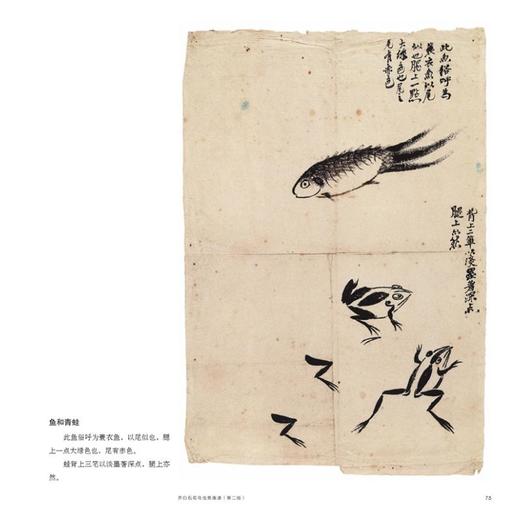 此魚俗呼為
蓑衣魚以尾
似也腮上一點
大綠色也尾之
尾有赤色
背上三筆以淡墨著深点
腿上亦然
鱼和青蛙
此鱼俗呼为蓑衣鱼，以尾似也，腮
上一点大绿色也，尾有赤色。
蛙背上三笔以淡墨著深点，腿上亦
然。
齐白石花鸟虫鱼画谱（第二版）
75